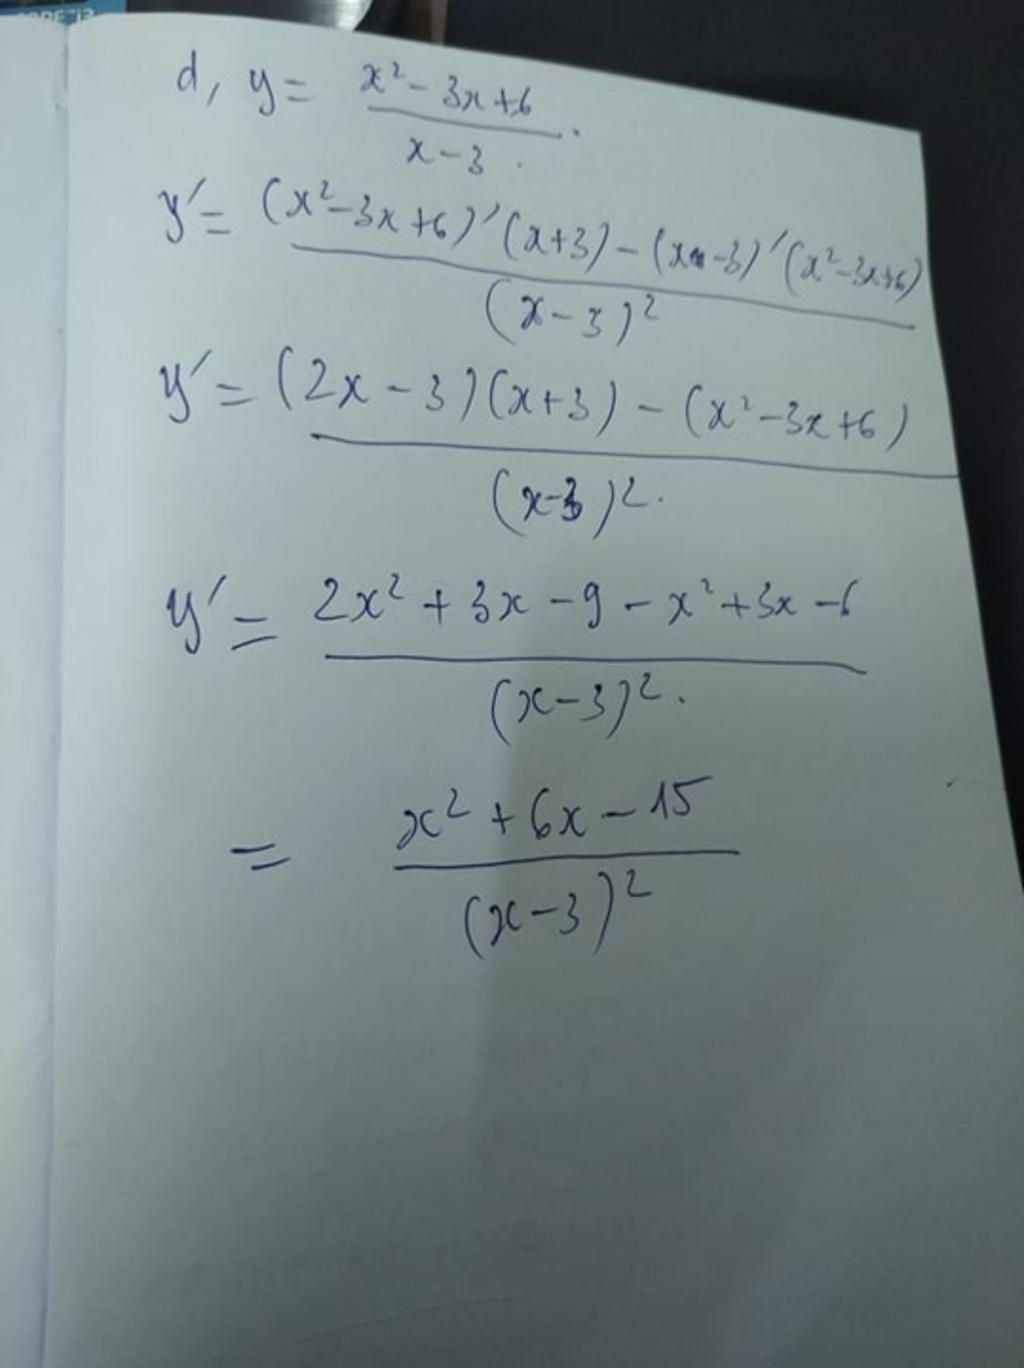 d, y = \frac{x^2 - 3x + 6}{x - 3}.
y' = \frac{(x^2 - 3x + 6)'(x + 3) - (x - 3)'(x^2 - 3x + 6)}{(x - 3)^2}
y' = \frac{(2x - 3)(x + 3) - (x^2 - 3x + 6)}{(x - 3)^2}.
y' = \frac{2x^2 + 3x - 9 - x^2 + 3x - 6}{(x - 3)^2}.
= \frac{x^2 + 6x - 15}{(x - 3)^2}